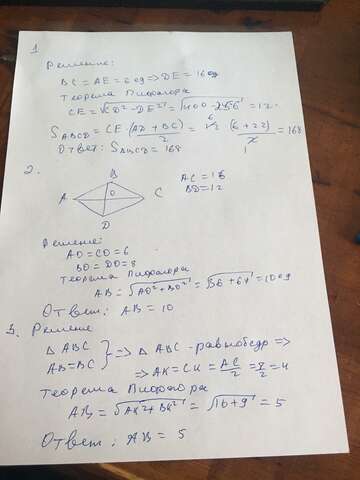 1
Решение:
BC = AE = 6 ед => DE = 16 ед
Теорема Пифагора
CE = √CD² - DE² = √400 - 256 = 12
S ABCD = CE · (AD + BC) / 2 = 12 6 (6 + 22) / 2 = 168
Ответ: S ABCD = 168
2.
B
A O C
D
AC = 16
BD = 12
Решение:
AO = CO = 6
BO = DO = 8
Теорема Пифагора
AB = √AO² + BO² = √36 + 64 = 10 ед
Ответ: AB = 10
3. Решение
△ ABC
AB = BC } => △ ABC - равнобедр =>
=> AK = CK = AC / 2 = 8 / 2 = 4
Теорема Пифагора
AB = √AK² + BK² = √16 + 9 = 5
Ответ: AB = 5